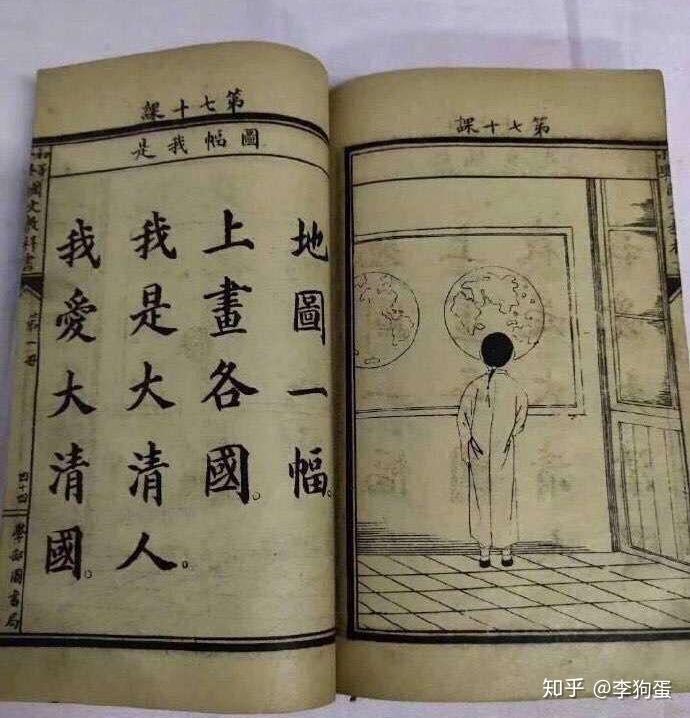 第七十課
第七十課
圖幅我是
地圖一幅。
上畫各國。
我是大清人。
我愛大清國。
國文教科書
第一冊
四十四
學部圖書局
知乎 @李狗蛋